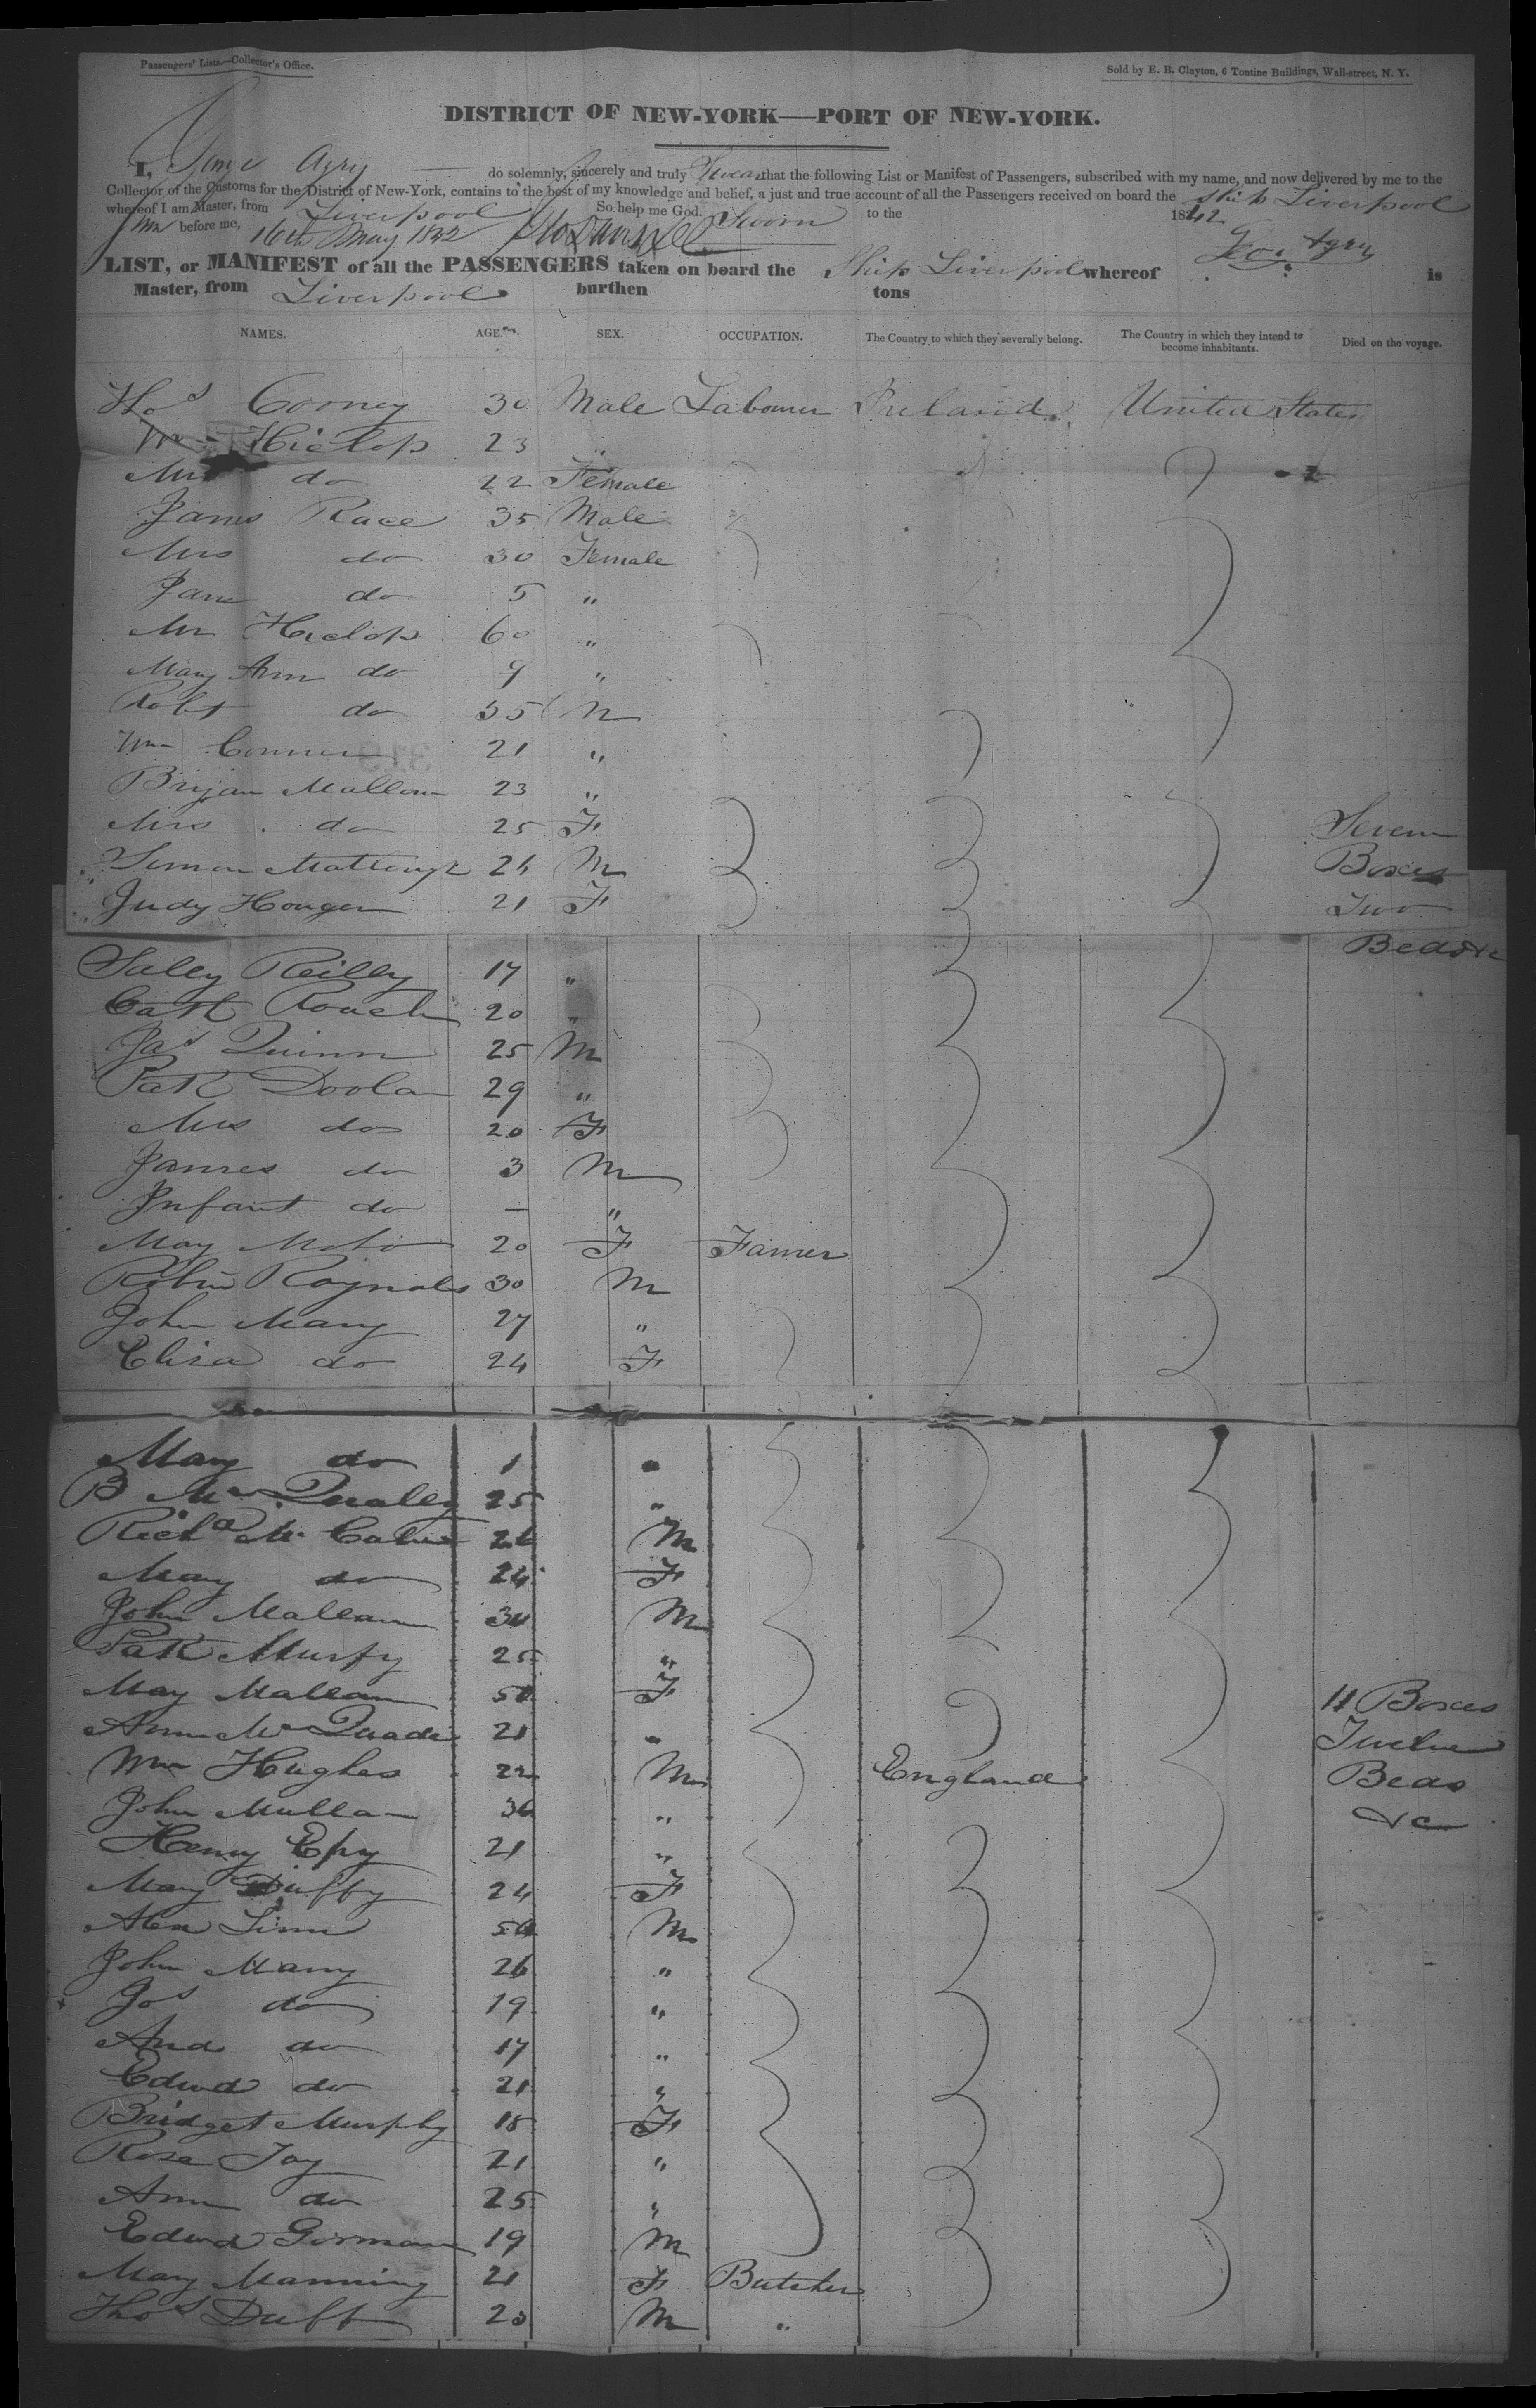 Passengers' Lists.—Collector's Office.
Sold by E. B. Clayton, 6 Tontine Buildings, Wall-street, N. Y.
DISTRICT OF NEW-YORK—PORT OF NEW-YORK.
I, Agry do solemnly, sincerely and truly Swear that the following List or Manifest of Passengers, subscribed with my name, and now delivered by me to the
Collector of the Customs for the District of New-York, contains to the best of my knowledge and belief, a just and true account of all the Passengers received on board the Ship Liverpool
whereof I am Master, from Liverpool So help me God.
Sworn to the 18
before me, 16th May 1842
Geo. Agry
LIST, or MANIFEST of all the PASSENGERS taken on board the Ship Liverpool whereof is
Master, from Liverpool burthen tons
NAMES. AGE. SEX. OCCUPATION. The Country to which they severally belong. The Country in which they intend to become inhabitants. Died on the voyage.
Thos Cooney 30 Male Labourer Ireland United States
Hislop 23 "
Mrs do 22 Female
James Race 35 Male
Mrs do 30 Female
Jane do 5 "
Hislop 60 "
Mary Ann do 9 "
Robt do 35 M
Wm Conner 21 "
Bryan Mallon 23 "
Mrs do 25 F Seven
Simon 26 M Boxes
Judy Hougan 21 F Two
Beds &c
Saley Reilly 17 "
Cath Roach 20 "
Jas Quinn 25 M
Patk Doolan 29 "
Mrs do 20 F
James do 3 M
Infant do — "
May 20 F Famer
Raynols 30 M
John Many 27 "
Eliza do 24 F
Mary do 1 "
B Mc Qualey 25 "
Richd Mc Cabe M
May do 24 F
John Mallan 30 M
Patk Murfy 25 "
May Mallan 50 F 11 Boxes
Ann Mc Quade 21 " Twelve
Wm Hughes 22 M England Beds
John Mulla 36 " &c
Henry Epy 21 "
Mary Duffy 24 F
Alex 50 M
John Many 26 "
Jos do 19 "
And do 17 "
Edwd do 21 "
Bridget Murphy 18 F
Rose Foy 21 "
Ann do 25 "
Edwd Gorman 19 M
Mary Manning 21 F Butcher
Thos Duff 20 M "